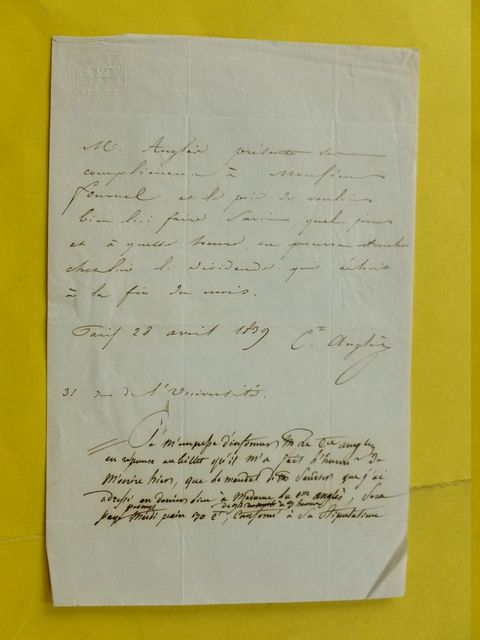 Mr. Anglès présente ses
compliments à Monsieur
Fournel, et le prie de vouloir
bien lui faire savoir quel jour
et à quelle heure, on pourra
chercher le dividende qui échoit
à la fin du mois.
Paris 28 avril 1839
Cte Anglès
31 rue de l'Université.
Je m'empresse d'informer M le Cte anglès
en réponse au billet qu'il m'a fait l'honneur De
M'écrire hier, que le mandat de M que j'ai
adressé en dernier lieu à Madame la Csse anglès, Sera
payé Mardi 30 Ct, Conformt à Sa Stipulation